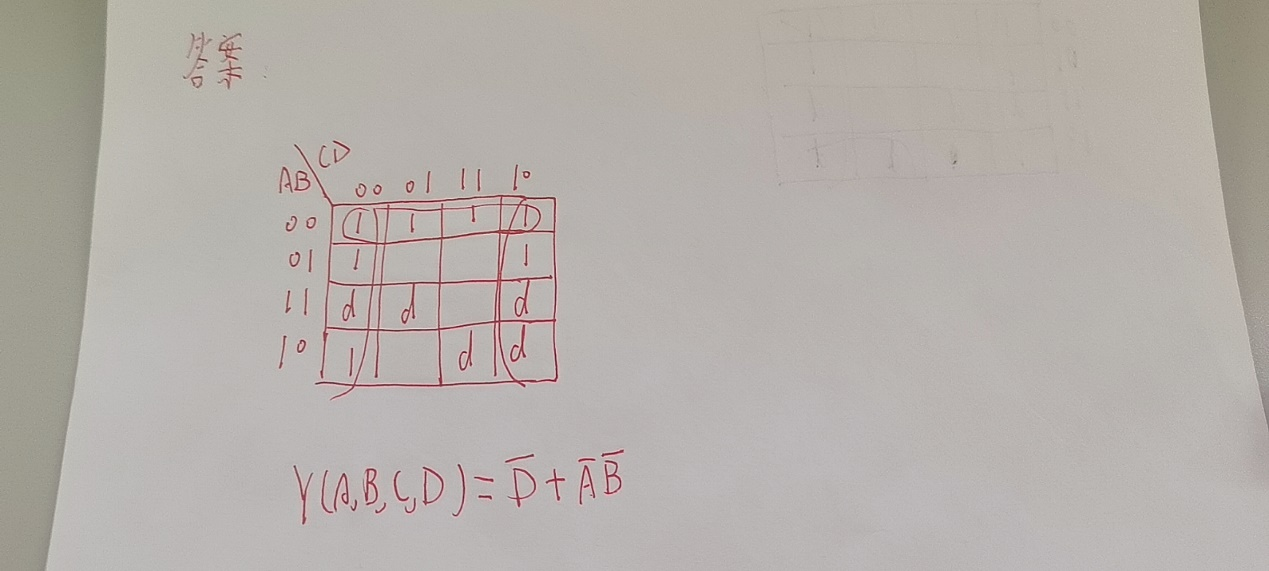 答案
AB\CD
00 01 11 10
00 1 1 1 1
01 1 1
11 d d d
10 1 d d
Y(A,B,C,D)=D̅+A̅B̅